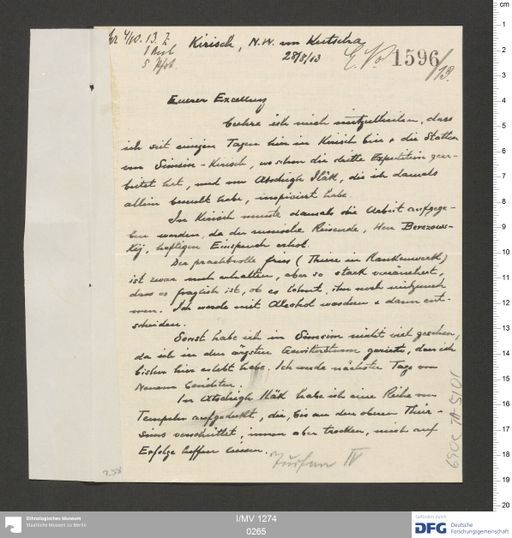 4/10. 13. Z.
Kirisch, N.W. von Kutscha
28/8/13
E. No 1596/13.
Euerer Excellenz
beehre ich mich mitzutheilen, dass
ich seit einigen Tagen hier in Kirisch bin & die Stätten
von Simsin-Kirisch, wo schon die dritte Expedition gear-
beitet hat, und von Atschigh Iläk, die ich damals
allein besucht habe, inspiciert habe.
In Kirisch musste damals die Arbeit aufgege-
ben werden, da der russische Reisende, Herr Berezows-
kij, heftigen Einspruch erhob.
Der prachtvolle Fries (Thiere in Rankenwerk)
ist zwar noch erhalten, aber so stark verräuchert,
dass es fraglich ist, ob es lohnt, ihn noch mitzuneh-
men. Ich werde mit Alcohol waschen & dann ent-
scheiden.
Sonst habe ich in Simsim nicht viel gesehen,
da ich in den ärgsten Gewittersturm geriet, den ich
bisher hier erlebt habe. Ich werde nächster Tage von
Neuem berichten.
In Atschigh Iläk habe ich eine Reihe von
Tempeln aufgedeckt, die, bis an den oberen Thür-
sims verschüttet, innen aber trocken, mich auf
Erfolge hoffen lassen.
Turfan IV
I/MV 1274
0265
Ethnologisches Museum
Staatliche Museen zu Berlin
DFG Deutsche
Forschungsgemeinschaft